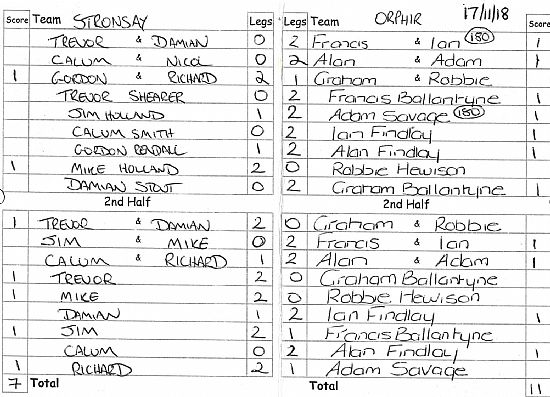 Score Team STRONSAY Legs Legs Team ORPHIR 17/11/18 Score
TREVOR & DAMIAN 0 2 Francis & Ian 180 1
CALUM & NICOL 0 2 Alan & Adam 1
1 GORDON & RICHARD 2 1 Graham & Robbie
TREVOR SHEARER 0 2 Francis Ballantyne 1
JIM HOLLAND 1 2 Adam Savage 180 1
CALUM SMITH 0 2 Iain Findlay 1
GORDON RENDALL 1 2 Alan Findlay 1
1 MIKE HOLLAND 2 0 Robbie Hewison
DAMIAN STOUT 0 2 Graham Ballantyne 1
2nd Half 2nd Half
1 TREVOR & DAMIAN 2 0 Graham & Robbie
JIM & MIKE 0 2 Francis & Ian 1
CALUM & RICHARD 1 2 Alan & Adam 1
1 TREVOR 2 0 Graham Ballantyne
1 MIKE 2 0 Robbie Hewison
DAMIAN 1 2 Iain Findlay 1
1 JIM 2 1 Francis Ballantyne
CALUM 0 2 Alan Findlay 1
1 RICHARD 2 1 Adam Savage
7 Total Total 11